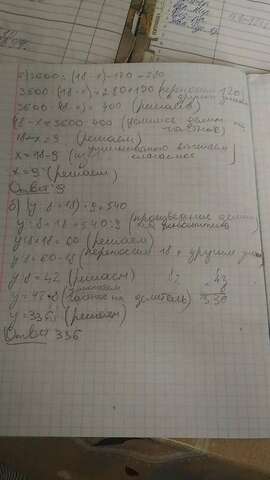 а) 3600 : (18-x) - 120 = 280
3600 : (18-x) = 280 + 120 (переносим 120 с другим знаком
3600 : (18-x) = 400 (решаем)
18-x = 3600 : 400 (делимое делим на частное)
18-x = 9 (решаем)
x = 18-9 (из уменьшаемого вычитаем
x = 9 (решаем)
Ответ 9
б) (y : 8 + 18) · 9 = 540
y : 8 + 18 = 540 : 9 (произведение делим на
y : 8 + 18 = 60 (решаем)
y : 8 = 60 - 18 (переносим 18 с другим
y : 8 = 42 (решаем)
y = 42 · 8 (частное на делитель)
336
y = 336 (решаем)
Ответ 336